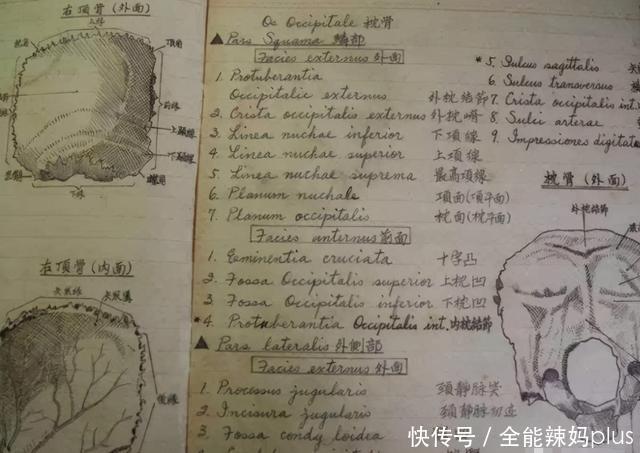 右頂骨(外面)
上緣
枕角
頂角
前緣
上顳線
下顳線
下緣
右頂骨(内面)
矢狀緣
後緣
Os Occipitale 枕骨
▲Pars Squama 鱗部
Facies externus 外面
1. Protuberantia
Occipitalic externus 外枕結節
2. Crista occipitalis externus 外枕嵴
3. Linea nuchae inferior 下項線
4. Linea nuchae superior 上項線
5. Linea nuchae suprema 最高項線
6. Planum nuchale 項面(項平面)
7. Planum occipitalis 枕面(枕平面)
Facies anternus 前面
1. Eminentia cruciata 十字凸
2. Fossa Occipitalis superior 上枕凹
3. Fossa Occipitalis inferior 下枕凹
*4. Protuberantia Occipitalis int. 内枕結節
▲Pars lateralis 外側部
Facies externus 外面
1. Processus jugularis 頚靜脉突
2. Incisura jugularis 頚靜脉切迹
3. Fossa condyloidea
*5. Sulcus sagittalis
6. Sulcus transversus
7. Crista occipitalis int.
8. Sulci arterae
9. Impressiones digitata
枕骨(外面)
外枕結節
快传号/全能辣妈plus